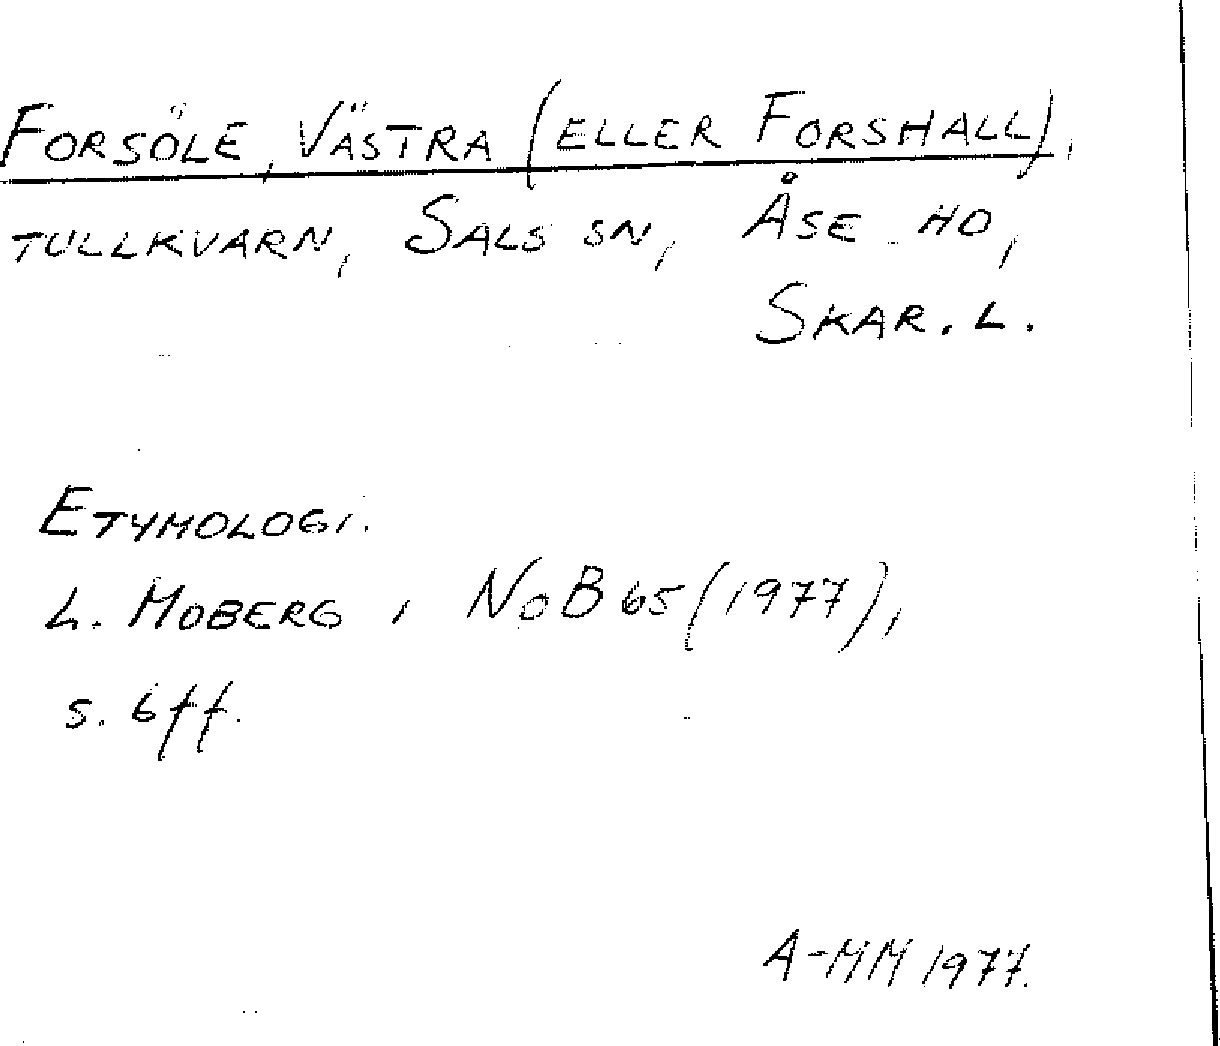 FORSÖLE, VÄSTRA (ELLER FORSHALL),
TULLKVARN, SALS SN, ÅSE HD,
SKAR. L.
ETYMOLOGI.
L. MOBERG I NoB 65 (1977),
s. 6ff.
A-MM 1977.